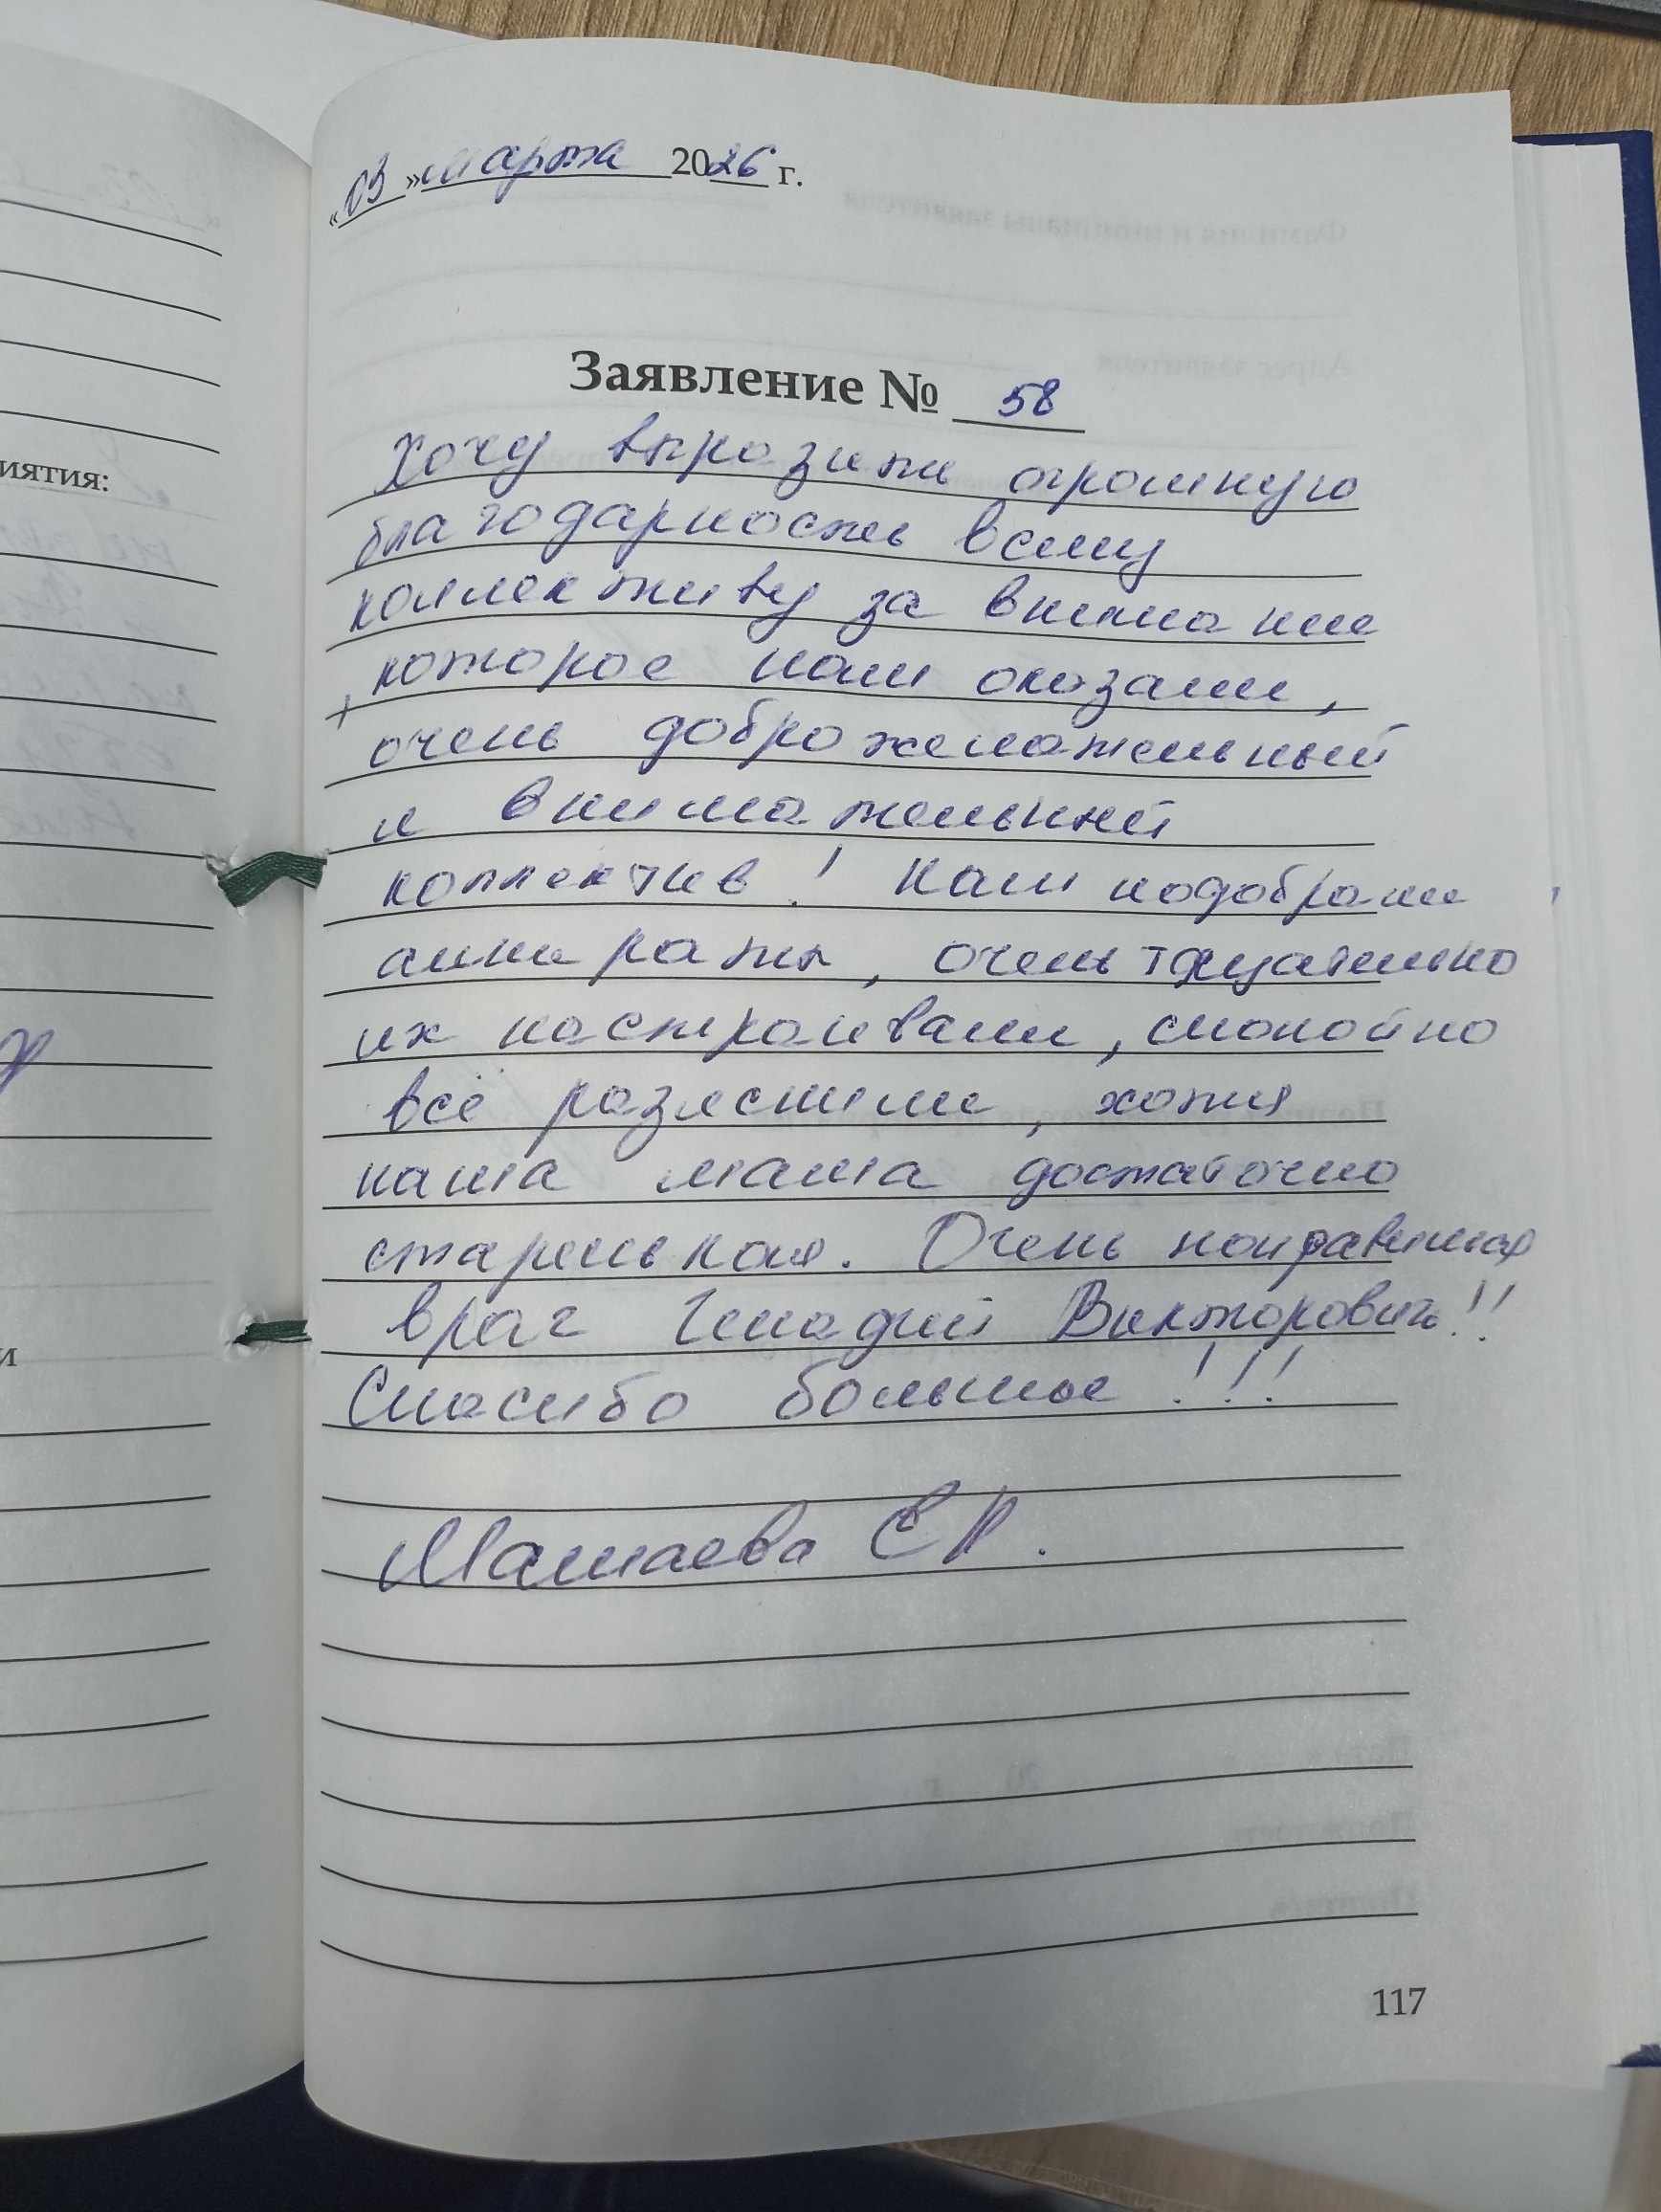 иятия:
и
«03» марта 2026 г.
Заявление № 58
Хочу выразить огромную
благодарность всему
коллективу за внимание
, которое нам оказали,
очень доброжелательный
и внимательный
коллектив! Нам подобрали
аппараты, очень тщательно
их настроивали, спокойно
всё разъеснили, хотя
наша мама достаточно
старенькая. Очень понравился
врач Генадий Викторович!!
Спасибо большое!!!
Машаева
117